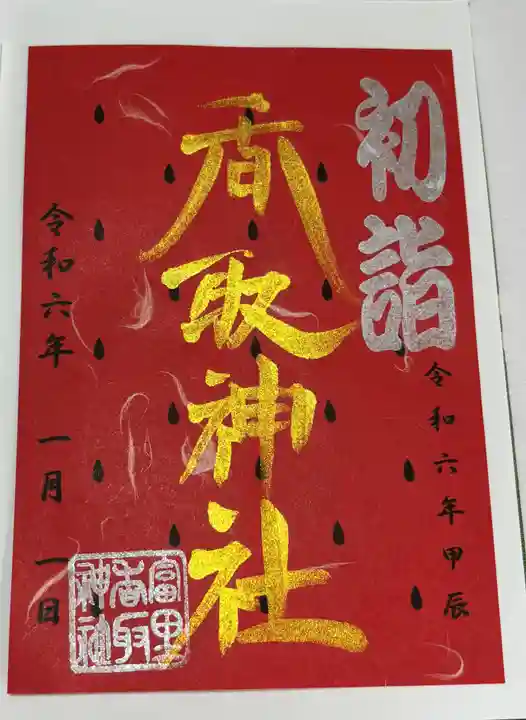 初詣
令和六年甲辰
香取神社
令和六年 一月一日
富里
香取
神社